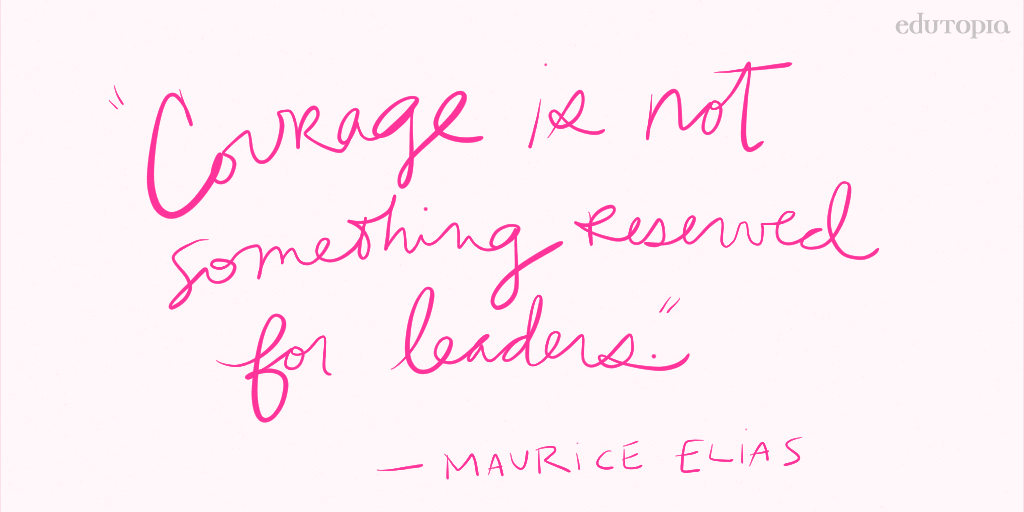 edutopia
"Courage is not
something reserved
for leaders."
— MAURICE ELIAS